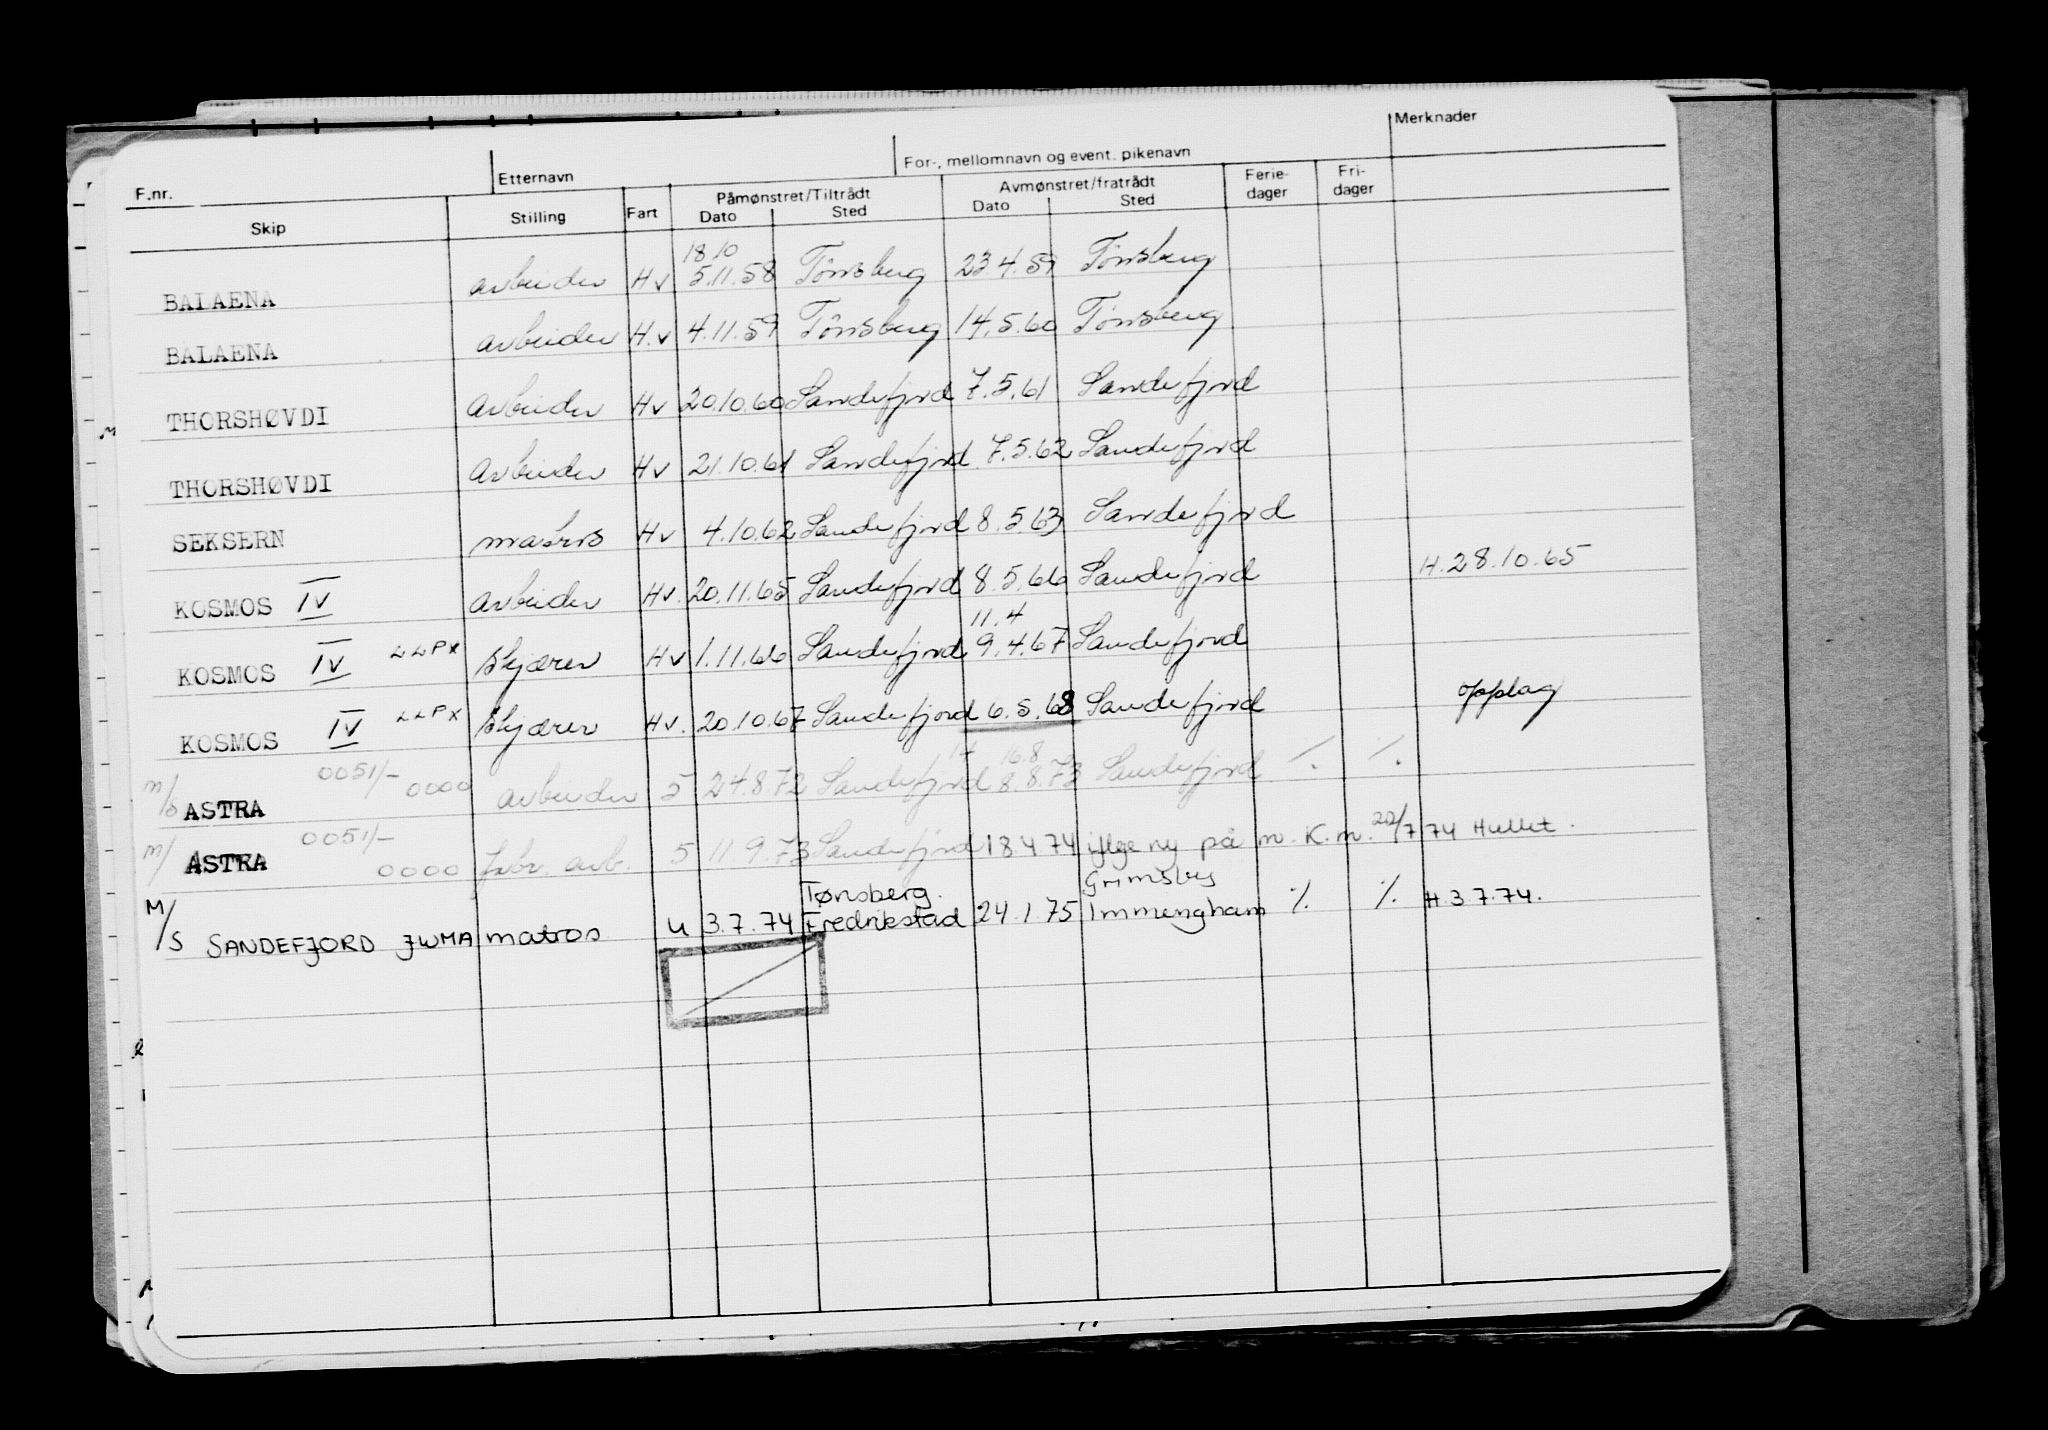 F.nr. Etternavn For-, mellomnavn og event. pikenavn Merknader
Skip Stilling Fart Påmønstret/Tiltrådt Dato Sted Avmønstret/fratrådt Dato Sted Ferie-dager Fri-dager
18 10
BALAENA arbeider Hv 5.11.58 Tønsberg 23 4.59 Tønsberg
BALAENA arbeider H.v 4.11.59 Tönsberg 14.5.60 Tönsberg
THORSHØVDI arbeider Hv 20.10.60 Sandefjord 7.5.61 Sandefjord
THORSHØVDI arbeider Hv 21.10.61 Sandefjord 7.5.62 Sandefjord
SEKSERN matros Hv 4.10.62 Sandefjord 8.5.63 Sandefjord
KOSMOS IV arbeider Hv. 20.11.65 Sandefjord 8.5.66 Sandefjord H.28.10.65
11.4
KOSMOS IV LLPX skjærer Hv 1.11.66 Sandefjord 9.4.67 Sandefjord
KOSMOS IV LLPX skjærer Hv. 20.10.67 Sandefjord 6.5.68 Sandefjord opplag
14 16.8
m/s ASTRA 0051/- 0000 arbeider 5 24.8.72 Sandefjord 8.8.73 Sandefjord ٪ ٪
m/ ASTRA 0051/- 0000 fabr. arb. 5 11.9.73 Sandefjord 18 4 74 iflge ny på m.K.m. 20/7 74 Hullet.
Tønsberg. Grimsby
M/S SANDEFJORD JWMA matros u 3.7.74 Fredrikstad 24.1.75 Immengham ٪ ٪ H.3 7.74.